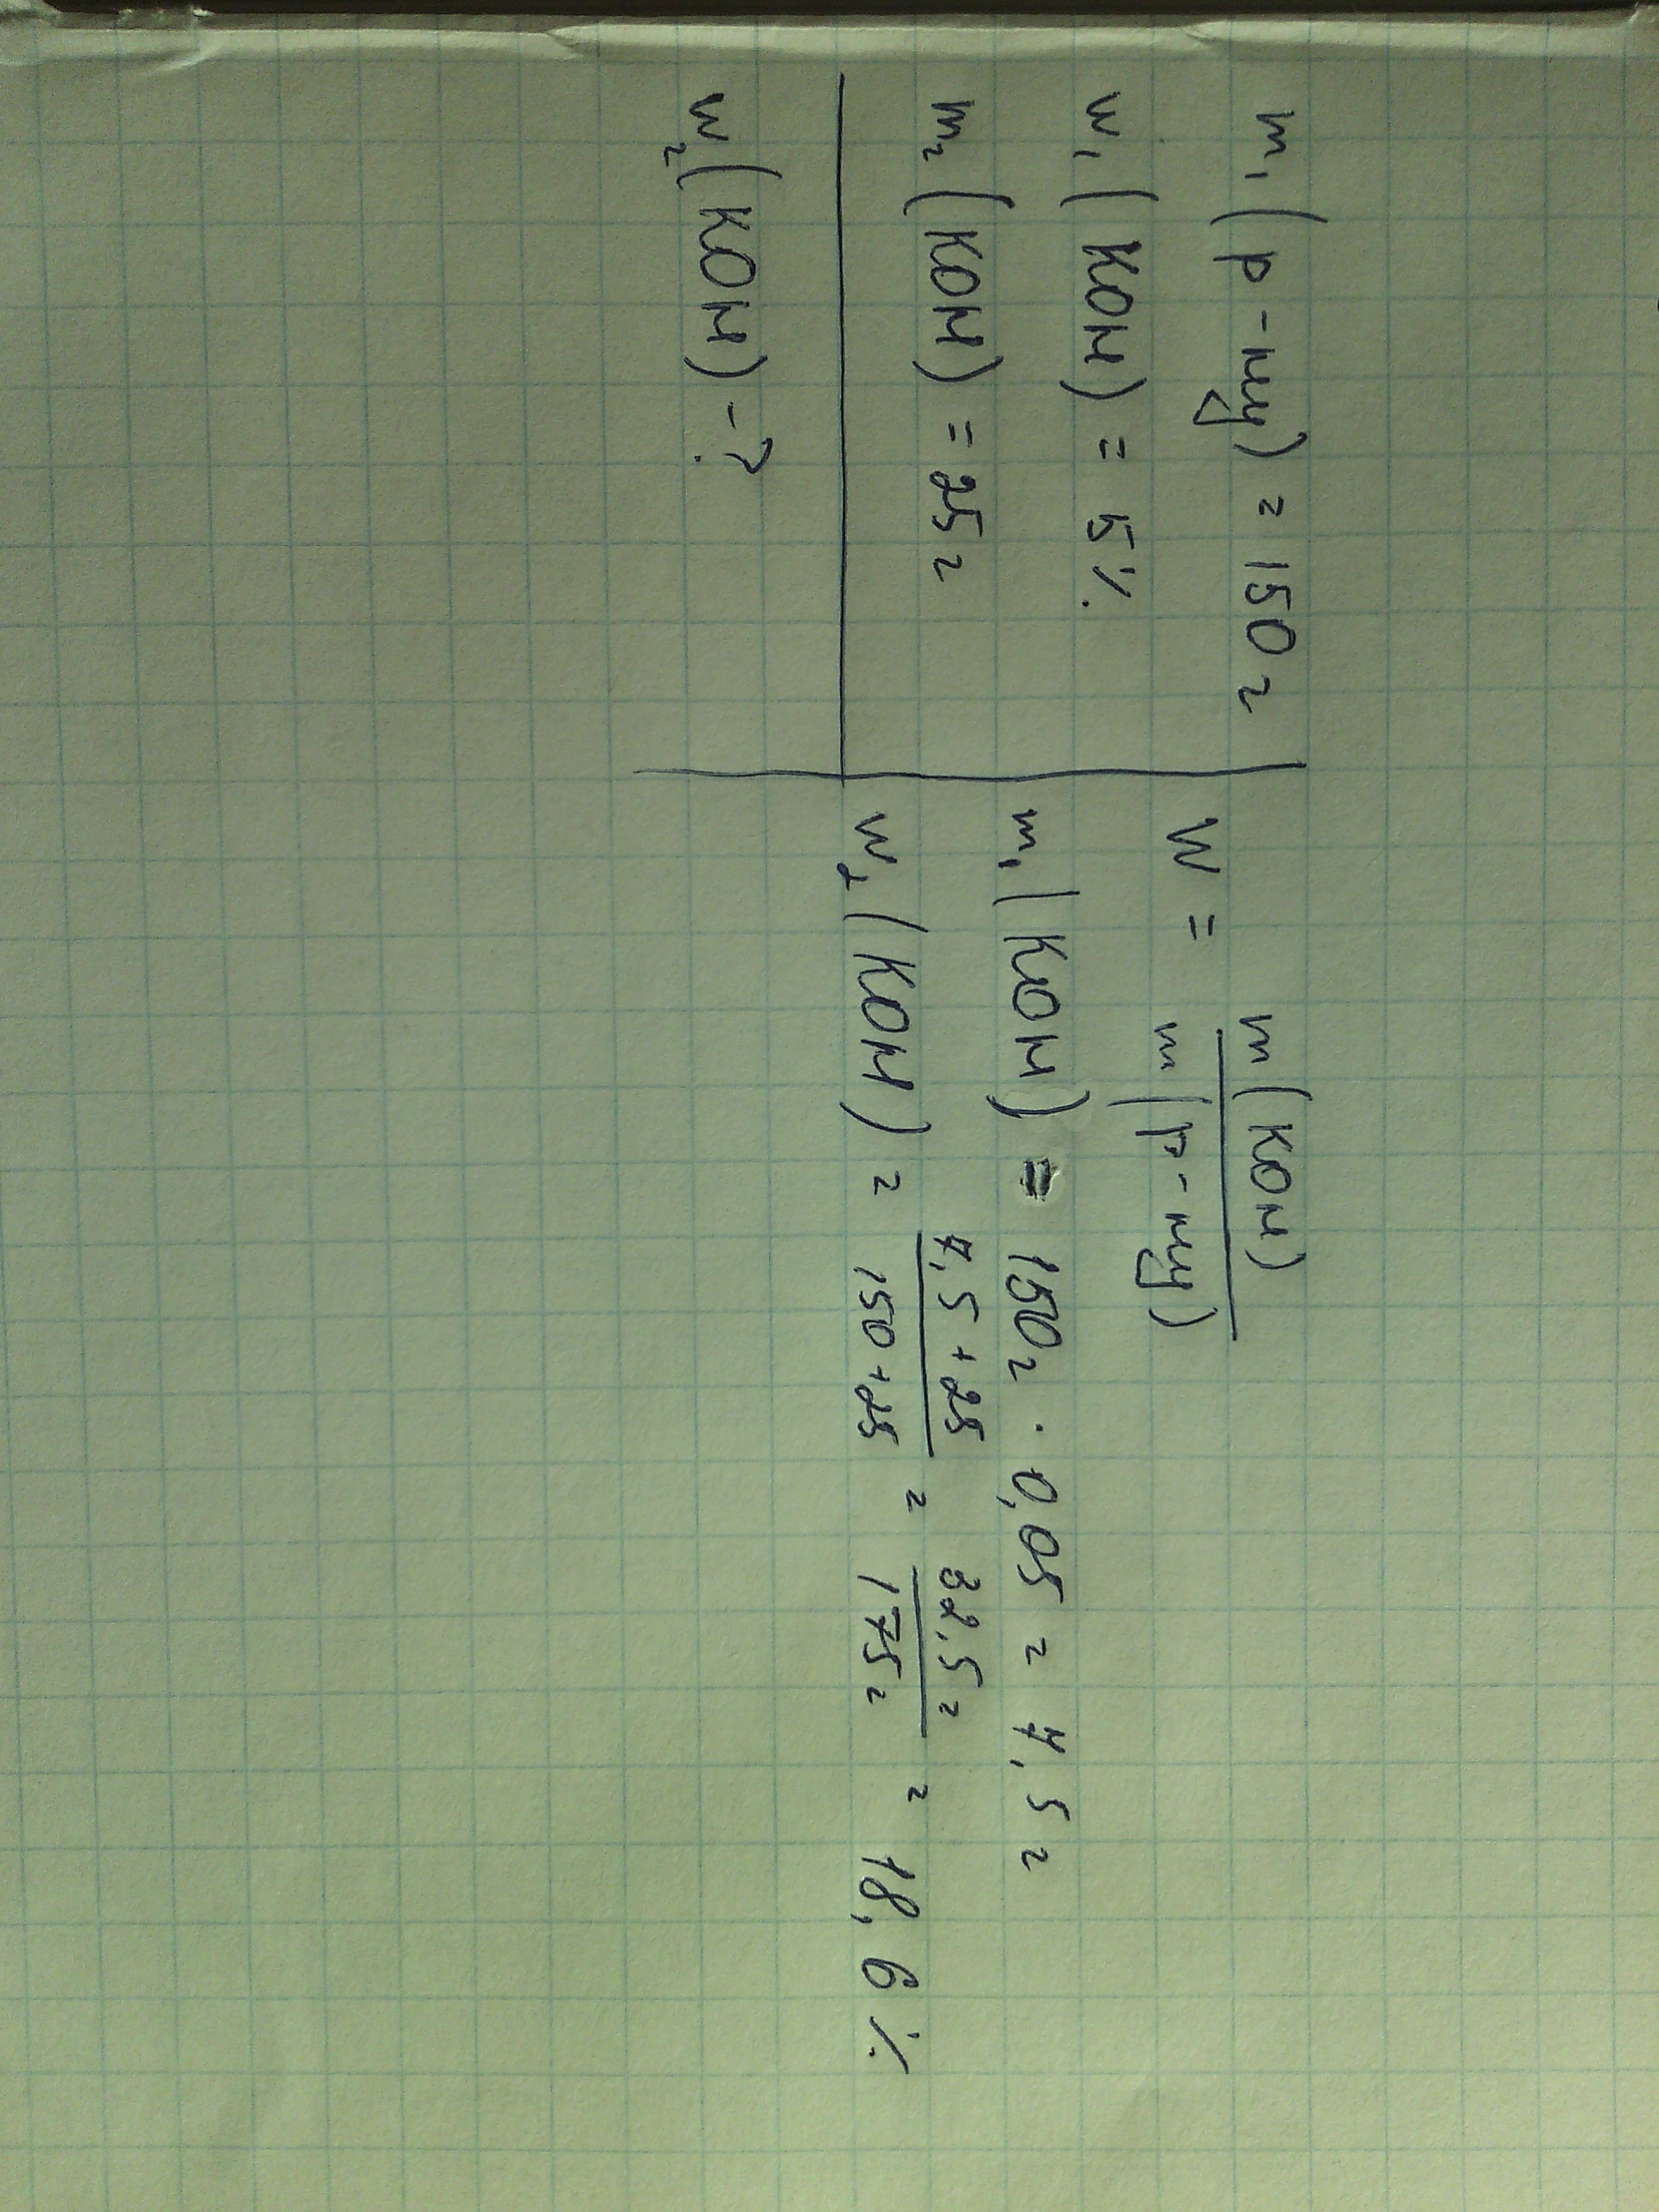 m₁(р-ну) = 150 г
w₁(KOH) = 5%
m₂(KOH) = 25 г
w₂(KOH) - ?
W = m(KOH) / m(р-ну)
m₁(KOH) = 150г · 0,05 = 7,5 г
w₂(KOH) = 7,5 + 25 / 150 + 25 = 32,5 г / 175 г = 18,6 %